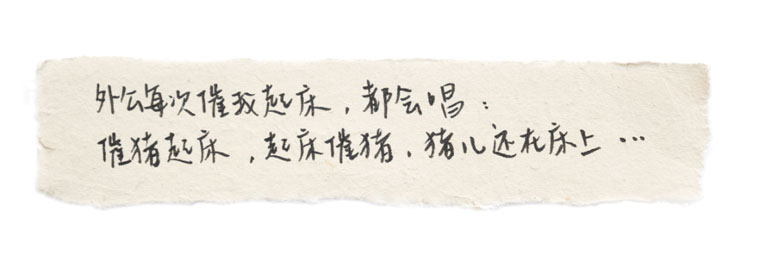 外公每次催我起床，都会唱：
催猪起床，起床催猪，猪儿还在床上…